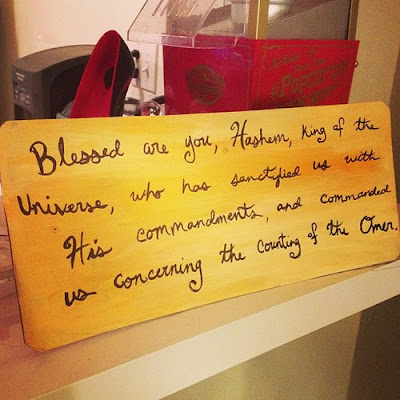 Blessed are you, Hashem, King of the
Universe, who has sanctified us with
His commandments, and commanded
us concerning the Counting of the Omer.